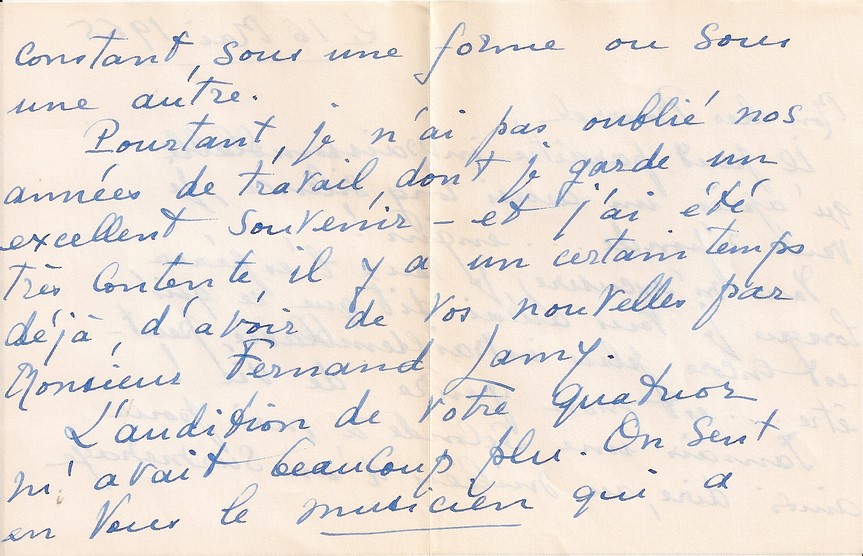 constant, sous une forme ou sous
une autre.
Pourtant, je n'ai pas oublié nos
années de travail dont je garde un
excellent souvenir – et j'ai été
très contente, il y a un certain temps
déjà, d'avoir de vos nouvelles par
Monsieur Fernand Lamy.
L'audition de votre quatuor
m'avait beaucoup plu. On sent
en vous le musicien qui a